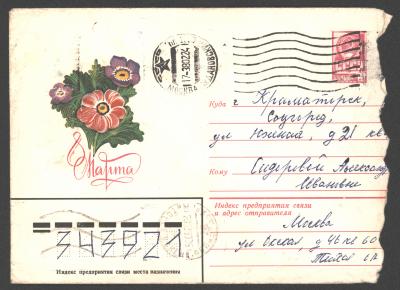 Куда г. Краматорск,
Соцгород,
ул Южная, д 21 кв
Кому Сидоровой Александре
Ивановне
8 Марта
Индекс предприятия связи
и адрес отправителя
Москва
ул Окская, д 46 кв 60
343921
Индекс предприятия связи места назначения
МОСКВА